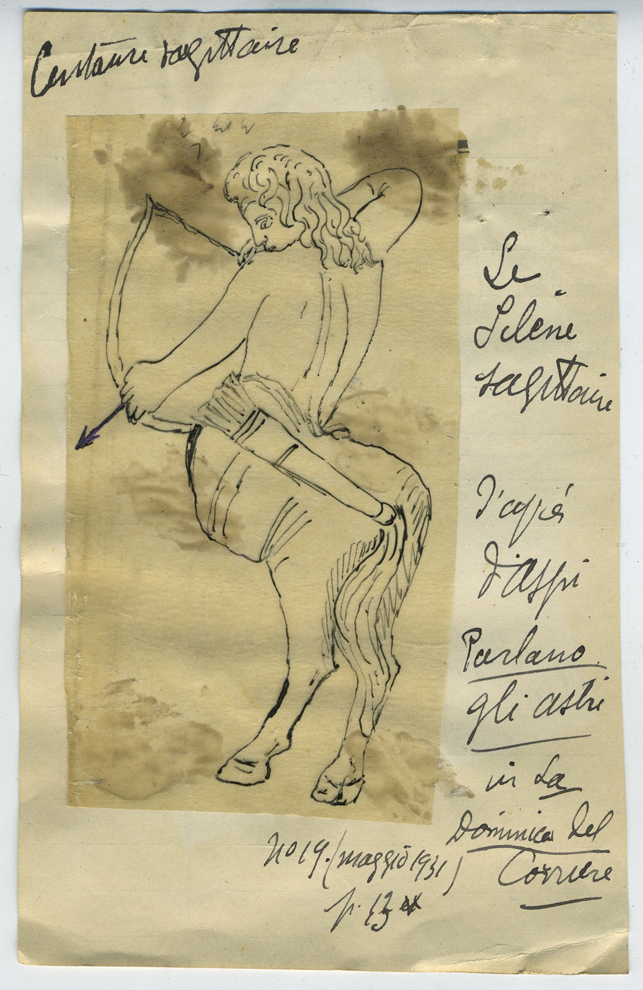 Centaure sagittaire
Le
Silène
sagittaire
D'après
Parlano
gli astri
in La
Dominica del
Corriere
no 19. (maggio 1931)
p. 13